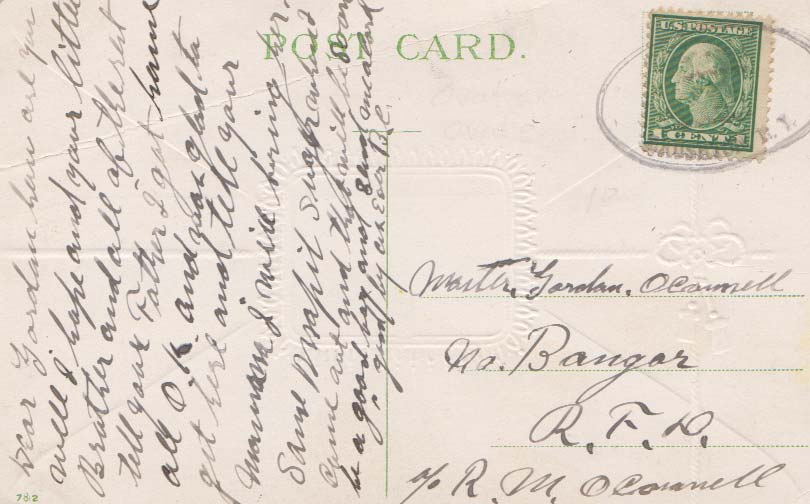 POST CARD.
U.S. POSTAGE
1 CENT 1
N. Y.
Dear Gordan how are you
well I hope and your little
Brother and all of the rest
tell your Father I got home
all O.K. and was glad to
get here and tell your
Mamma I will bring her
Some Maple Sugar when I
Come out and that will be soon
be a good boy and send me a card
Master, Gordan, OConnell
No. Bangor
R. F. D.
c/o R. M. OConnell
782